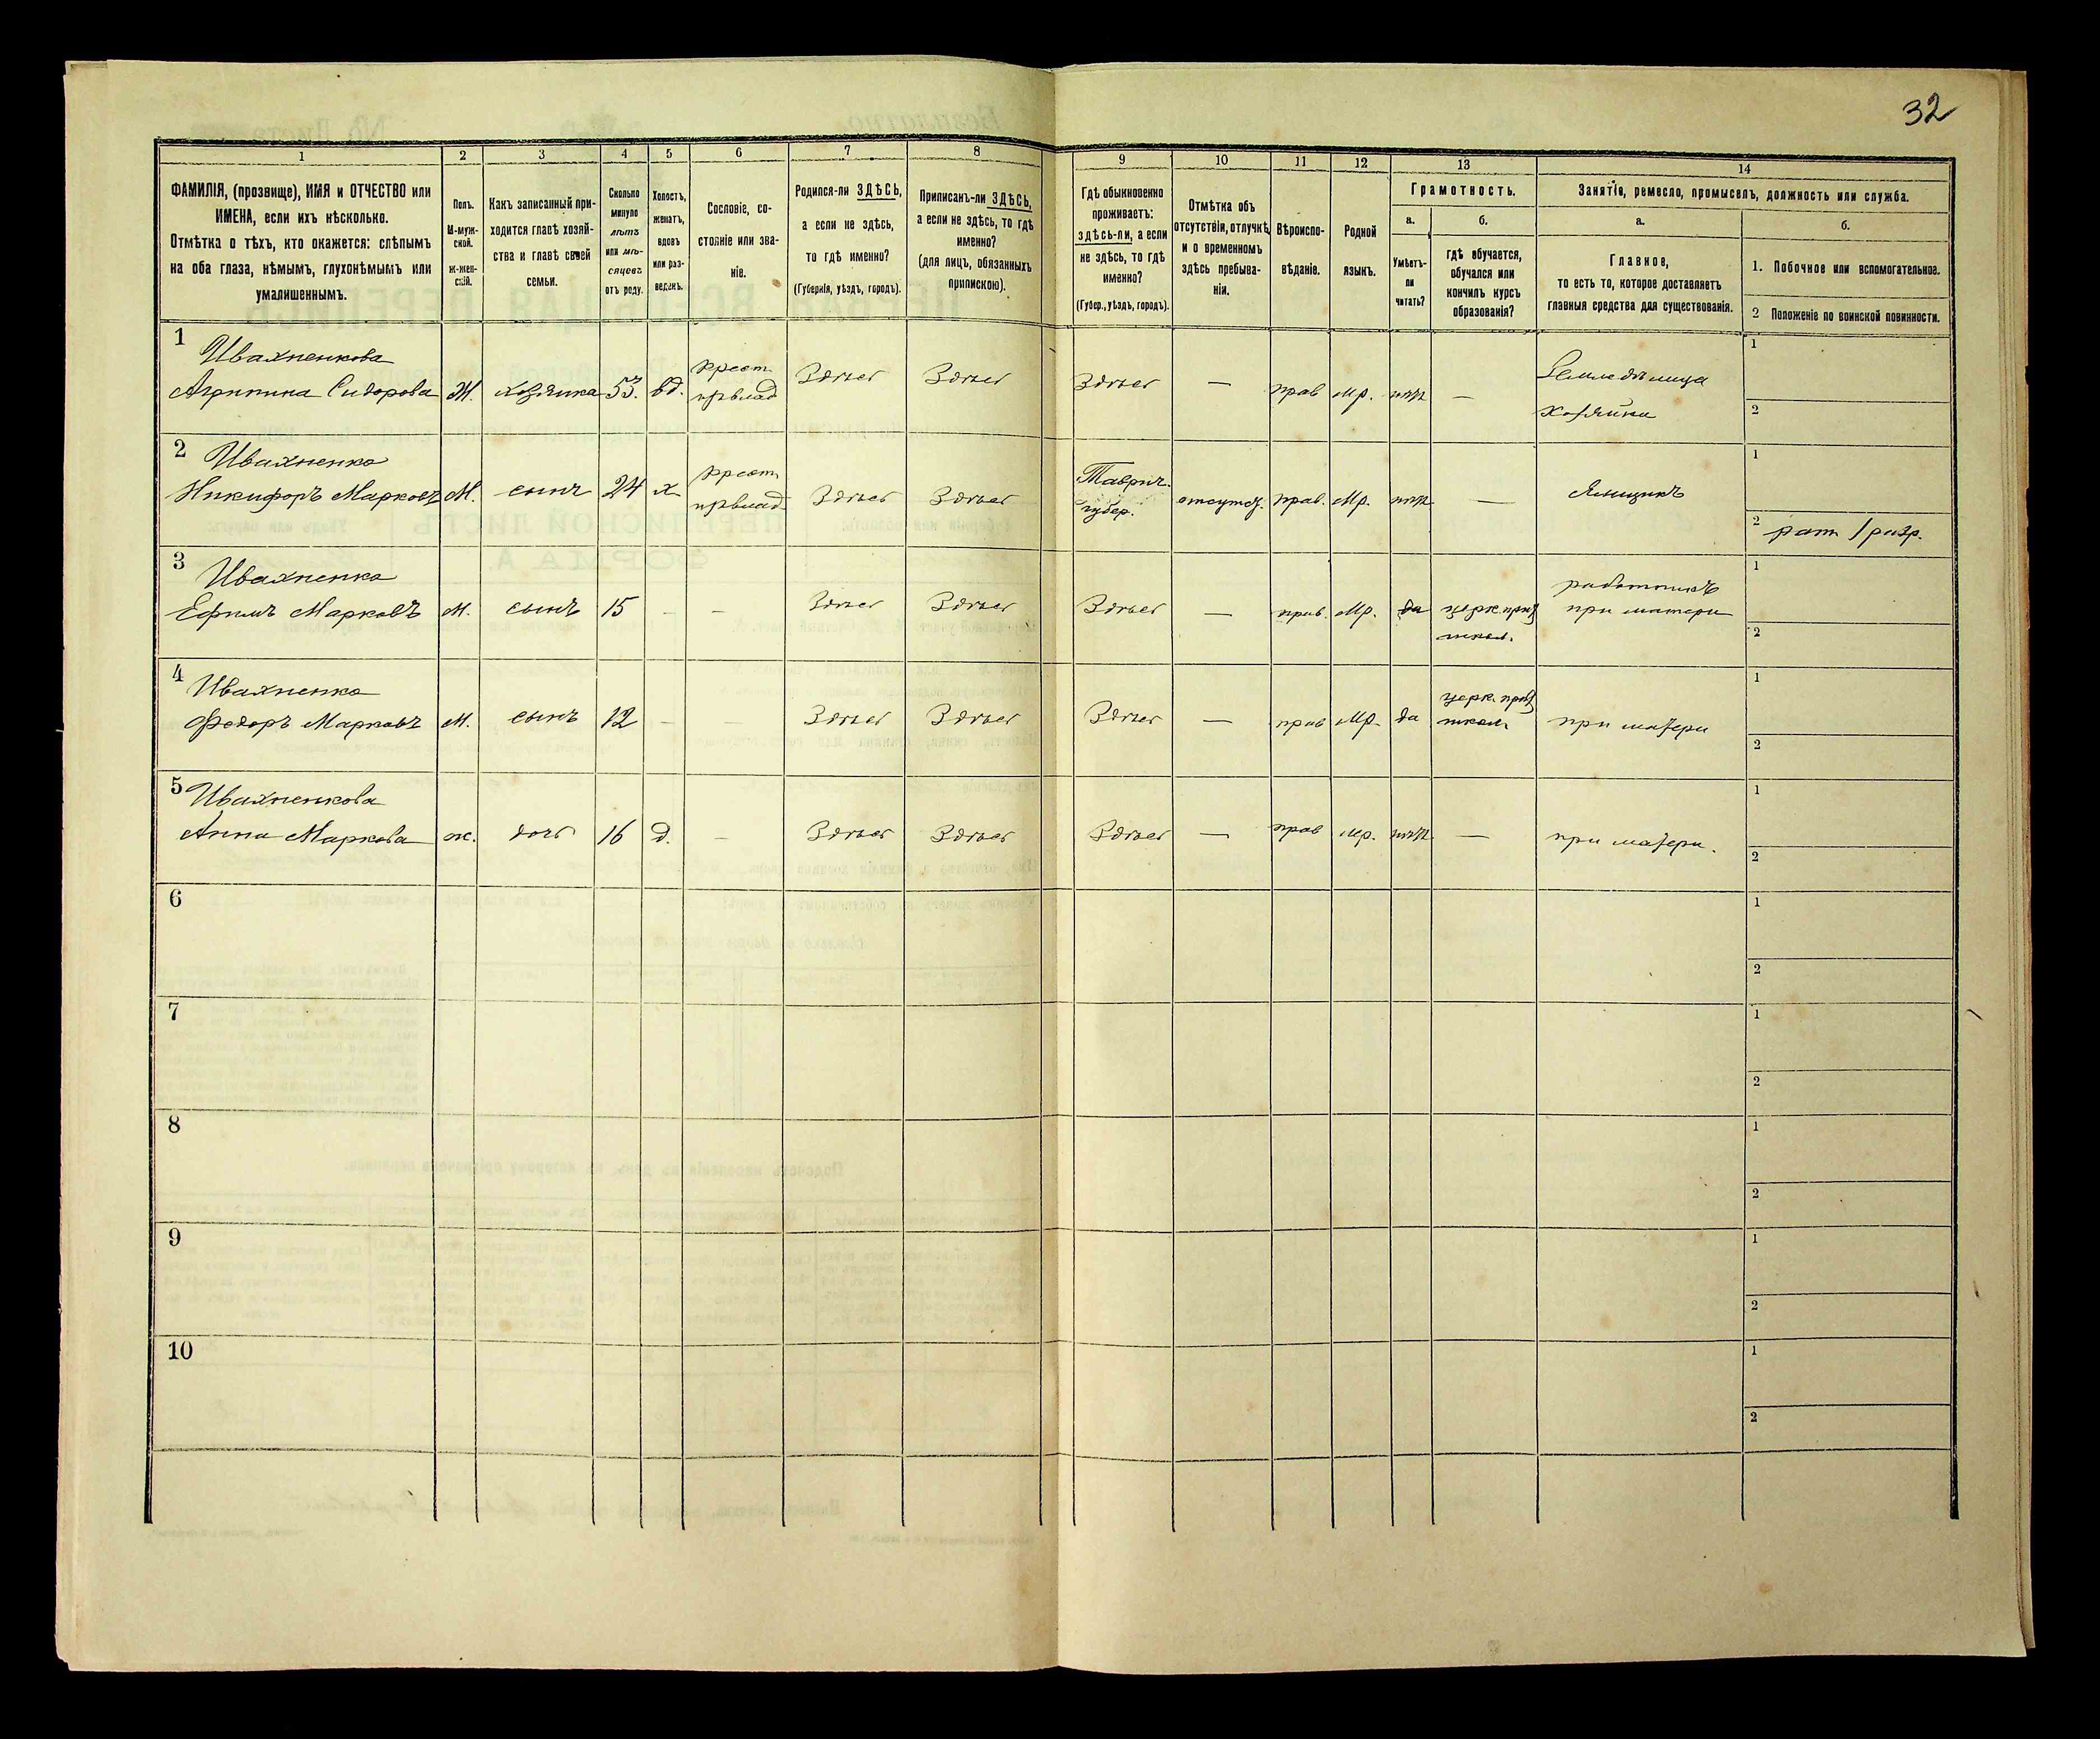 32
1
2
3
4
5
6
7
8
9
10
11
12
13
14
ФАМИЛІЯ, (прозвище), ИМЯ и ОТЧЕСТВО или
ИМЕНА, если ихъ нѣсколько.
Отмѣтка о тѣхъ, кто окажется: слѣпымъ
на оба глаза, нѣмымъ, глухонѣмымъ или
умалишеннымъ.
Полъ.
М-муж-
ской.
Ж-жен-
скій.
Какъ записанный при-
ходится главѣ хозяй-
ства и главѣ своей
семьи.
Сколько
минуло
лѣтъ
или мѣ-
сяцевъ
отъ роду.
Холостъ,
женатъ,
вдовъ
или раз-
веденъ.
Сословіе, со-
стояніе или зва-
ніе.
Родился-ли ЗДѢСЬ,
а если не здѣсь,
то гдѣ именно?
(Губернія, уѣздъ, городъ).
Приписанъ-ли ЗДѢСЬ,
а если не здѣсь, то гдѣ
именно?
(для лицъ, обязанныхъ
припискою).
Гдѣ обыкновенно
проживаетъ:
здѣсь-ли, а если
не здѣсь, то гдѣ
именно?
(Губер., уѣздъ, городъ).
Отмѣтка объ
отсутствіи, отлучкѣ
и о временномъ
здѣсь пребыва-
ніи.
Вѣроиспо-
вѣданіе.
Родной
языкъ.
Грамотность.
а.
Умѣетъ-
ли
читать?
б.
гдѣ обучается,
обучался или
кончилъ курсъ
образованія?
Занятіе, ремесло, промыселъ, должность или служба.
а.
Главное,
то есть то, которое доставляетъ
главныя средства для существованія.
б.
1. Побочное или вспомогательное.
2 Положеніе по воинской повинности.
1 Ивахненкова
Агрипина Сидорова Ж. хозяйка 53. вд. крест првлад Здѣсь Здѣсь Здѣсь — прав мр. нѣт — Земледѣлица хозяйка 1 2
2 Ивахненко
Никифоръ Марковъ М. сынъ 24 х крест првлад Здѣсь Здѣсь Таврич. губер. отсутст. прав. мр. нѣт — Ямщикъ 1
2 рат 1 разр.
3 Ивахненко
Ефимъ Марковъ М. сынъ 15 — — Здѣсь Здѣсь Здѣсь — прав. мр. да церк. прих школ. работникъ при матери 1 2
4 Ивахненко
Федоръ Марковъ М. сынъ 12 — — Здѣсь Здѣсь Здѣсь — прав мр. да церк. прих школ. при матери 1 2
5 Ивахненкова
Анна Маркова ж. дочь 16 д. — Здѣсь Здѣсь Здѣсь — прав мр. нѣт — при матери. 1 2
6 1 2
7 1 2
8 1 2
9 1 2
10 1 2